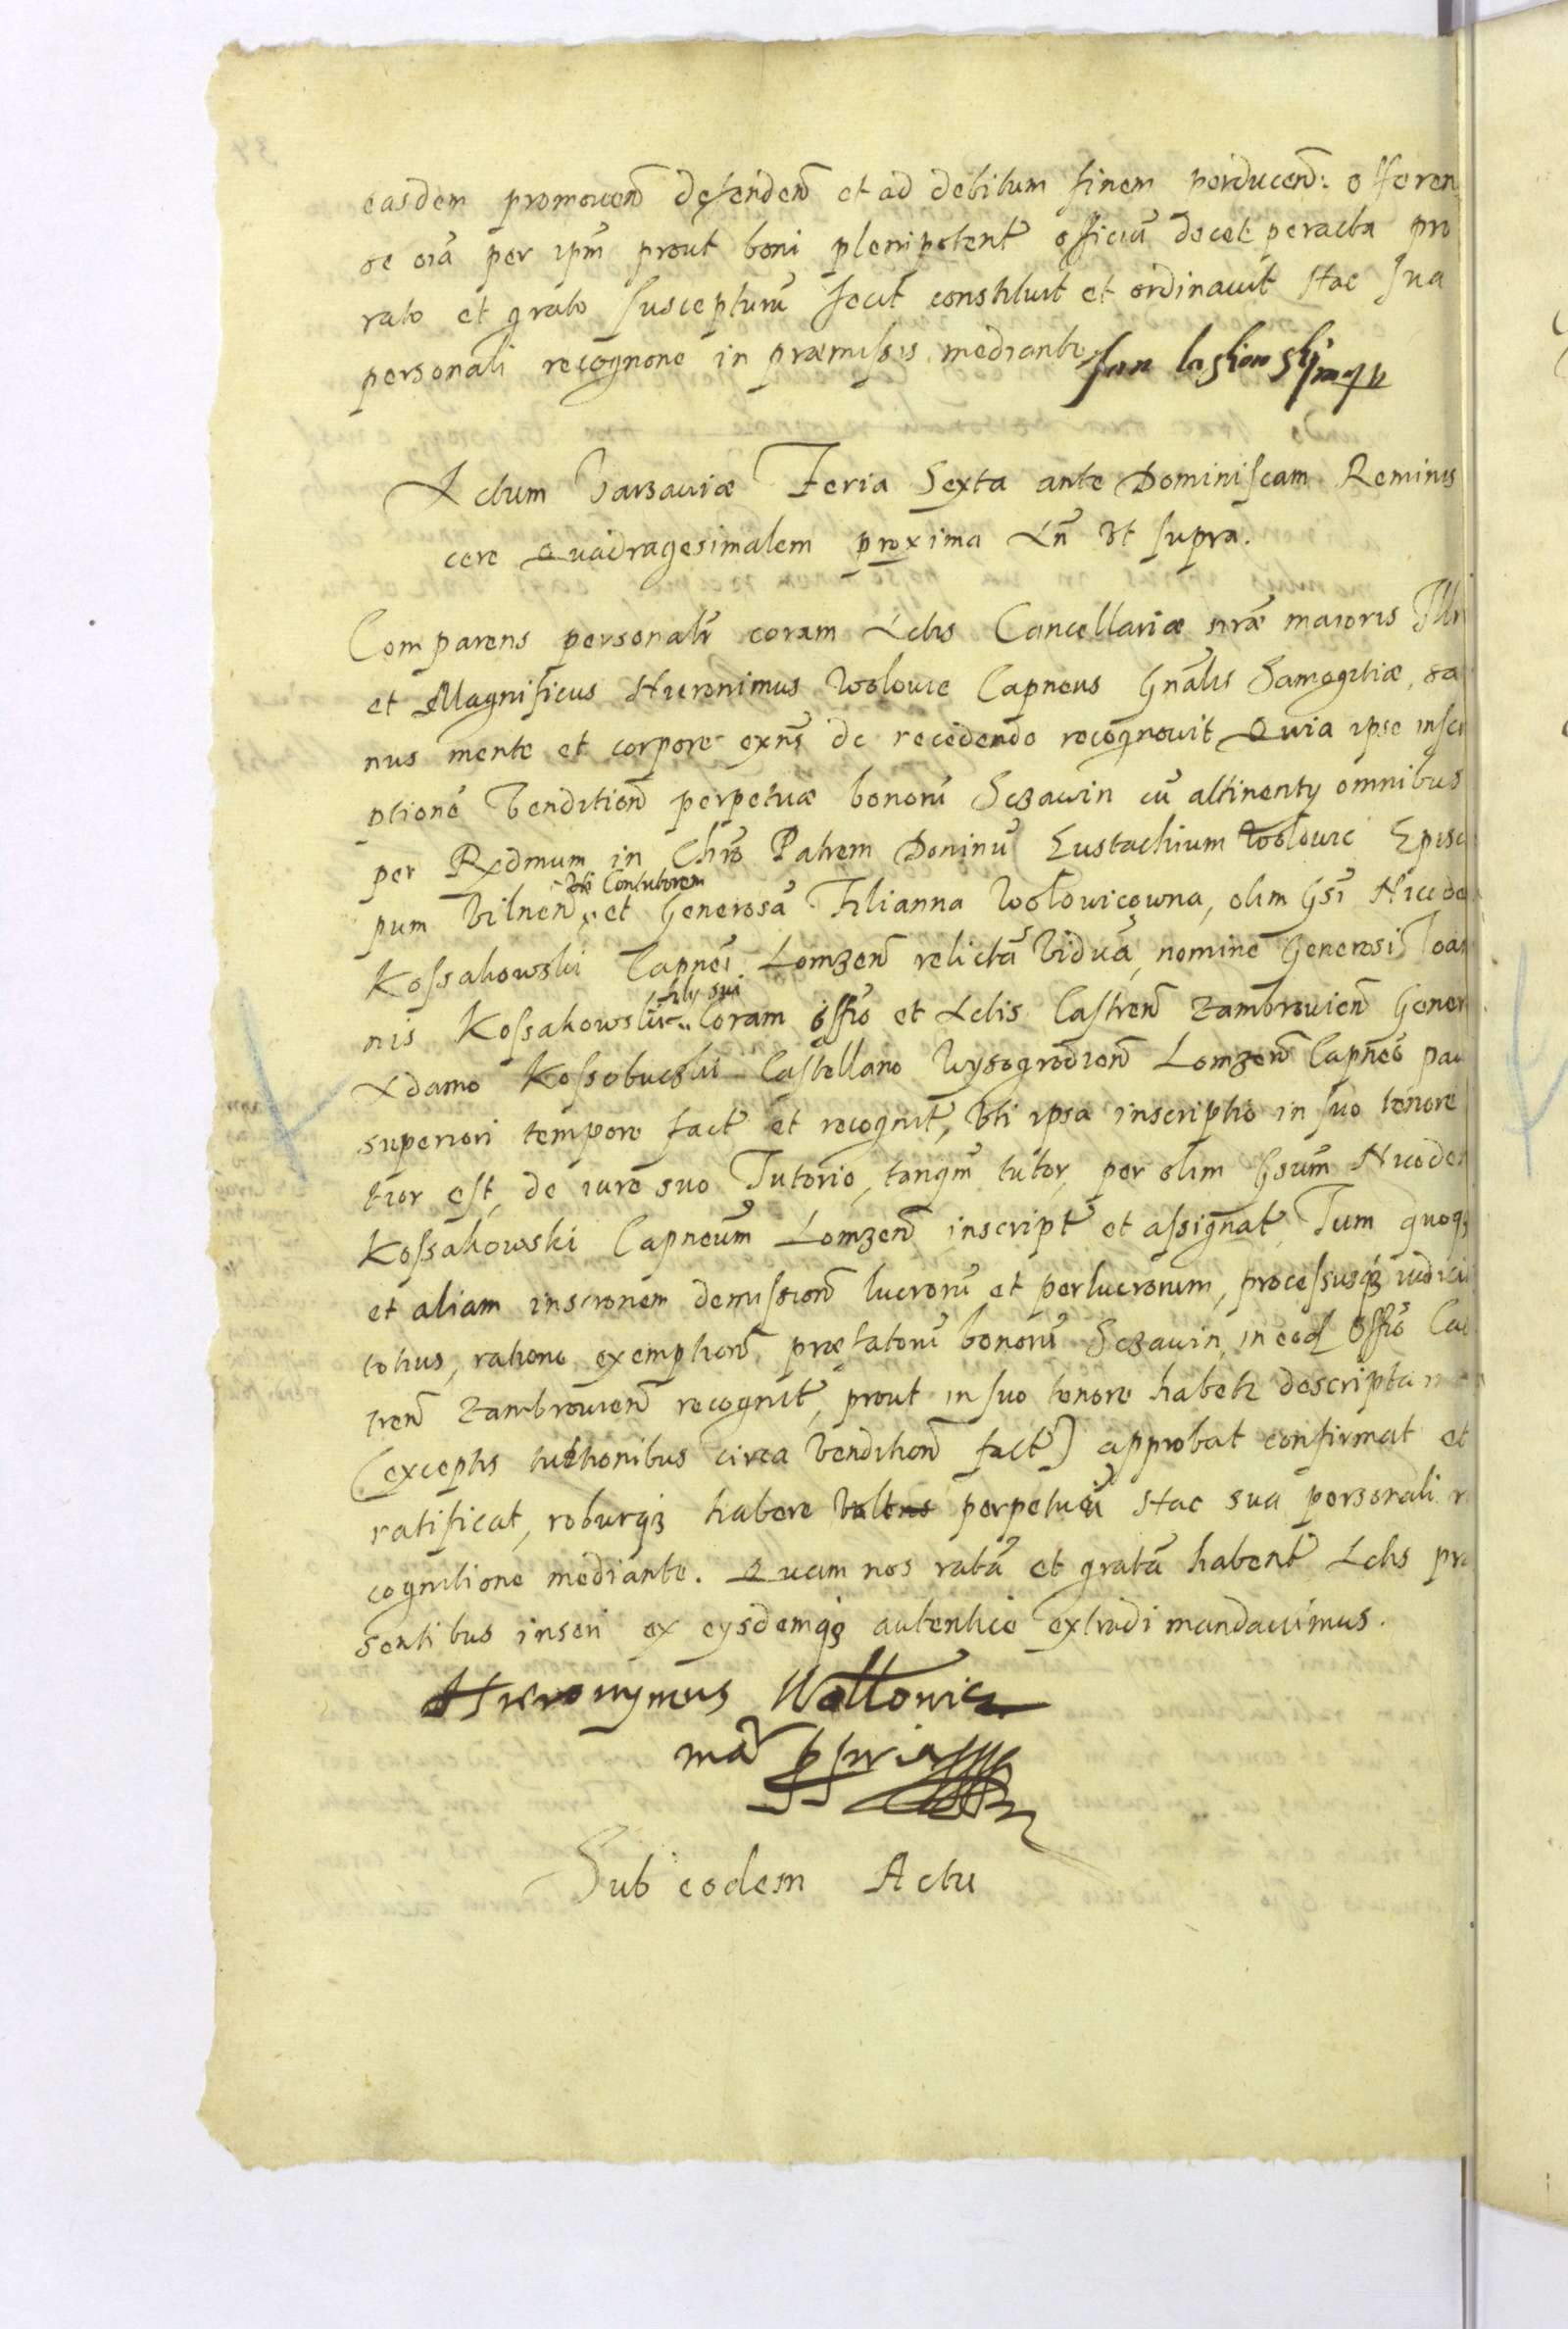 easdem promoven̄ defenden̄ et ad debitum finem perducen̄: offeren
se oīa per ipm̄ prout boni plenipotent̄ officiū decet peracta pro
rato et grato suscepturū fecit constituit et ordinavit Hac sua
personali recognone in præmissis mediante.
Actum Varsaviæ Feria Sexta ante Dominiscam Reminis
cere Quadragesimalem proxima An̄ Vt supra.
Comparens personalr̄ coram Actis Cancellariæ nr̄æ maioris Illr
et Magnificus Hieronimus Wolowic Capneus Gnālis Samogitiæ, sa
nus mente et corpore exn̄s de recedendo recognovit Quia ipse inscri
ptionē Vendition̄ perpetuæ bonorū Sczawin cū attinentÿ omnibus
per Rx̄dmum in Chr̄o Patrem Dominū Eustachium Wolowic Episco
pum Vilnen̄ Vti Contutorem et Generosā Filianna Wolowicowna, olim Gsī Nicode
Kossakowski Capnei Lomzen̄ relictā Viduā, nomine Generosi Ioan
nis Kossakowski filÿ sui Coram offo et Actis Castren̄ Zambrovien̄ Gener
Adamo Kossobucski Castellano Wysogrodien̄ Lomzen̄ Capneo pau
superiori tempore fact̄ et recognit̄, Vti ipsa inscriptio in suo tenore
tior est, de iure suo Tutorio, tanqm̄ tutor, per olim Gsum̄ Nicodem
Kossakowski Capneum̄ Lomzen̄ inscript̄ et assignat̄, Tum quoq
et aliam inscronem demission̄ lucrorū et perlucrorum, processusq iudicii
totius, ratione exemption̄ præfatorū bonorū Sczawin, in eod offo Cas
tren̄ Zambrovien̄ recognit̄, prout in suo tenore habetr descripta
(exceptis tuitionibus circa Vendition̄ fact̄) approbat confirmat et
ratificat, roburq habere perpetuū Hac sua personali r
cognitione mediante. Quam nos ratā et gratā habent̄ Actis præ
sentibus inseri ex eÿsdemq autentice extradi mandavimus.
Hieronymus Wollowicz
mā ppria
Sub eodem Actu